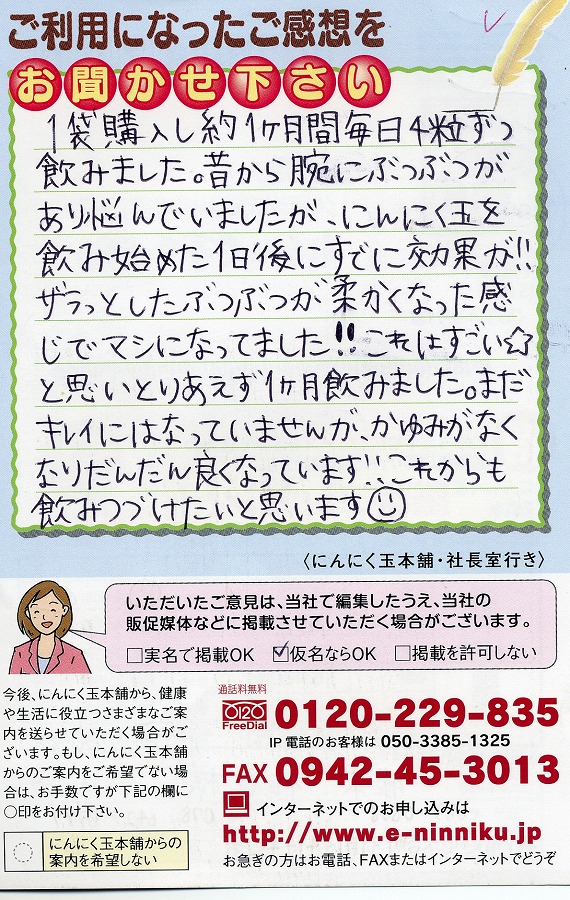 ご利用になったご感想を
お聞かせ下さい
1袋購入し約1ヶ月間毎日4粒ずつ
飲みました。昔から腕にぶつぶつが
あり悩んでいましたが、にんにく玉を
飲み始めた1日後にすでに効果が!!
ザラっとしたぶつぶつが柔かくなった感
じでマシになってました!!これはすごい☆
と思いとりあえず1ヶ月飲みました。まだ
キレイにはなっていませんが、かゆみがなく
なりだんだん良くなっています!!これからも
飲みつづけたいと思います☺
〈にんにく玉本舗・社長室行き〉
いただいたご意見は、当社で編集したうえ、当社の
販促媒体などに掲載させていただく場合がございます。
□実名で掲載OK ☑仮名ならOK □掲載を許可しない
今後、にんにく玉本舗から、健康
や生活に役立つさまざまなご案
内を送らせていただく場合がご
ざいます。もし、にんにく玉本舗
からのご案内をご希望でない場
合は、お手数ですが下記の欄に
○印をお付け下さい。
にんにく玉本舗からの
案内を希望しない
通話料無料
FreeDial 0120-229-835
IP電話のお客様は 050-3385-1325
FAX 0942-45-3013
インターネットでのお申し込みは
http://www.e-ninniku.jp
お急ぎの方はお電話、FAXまたはインターネットでどうぞ